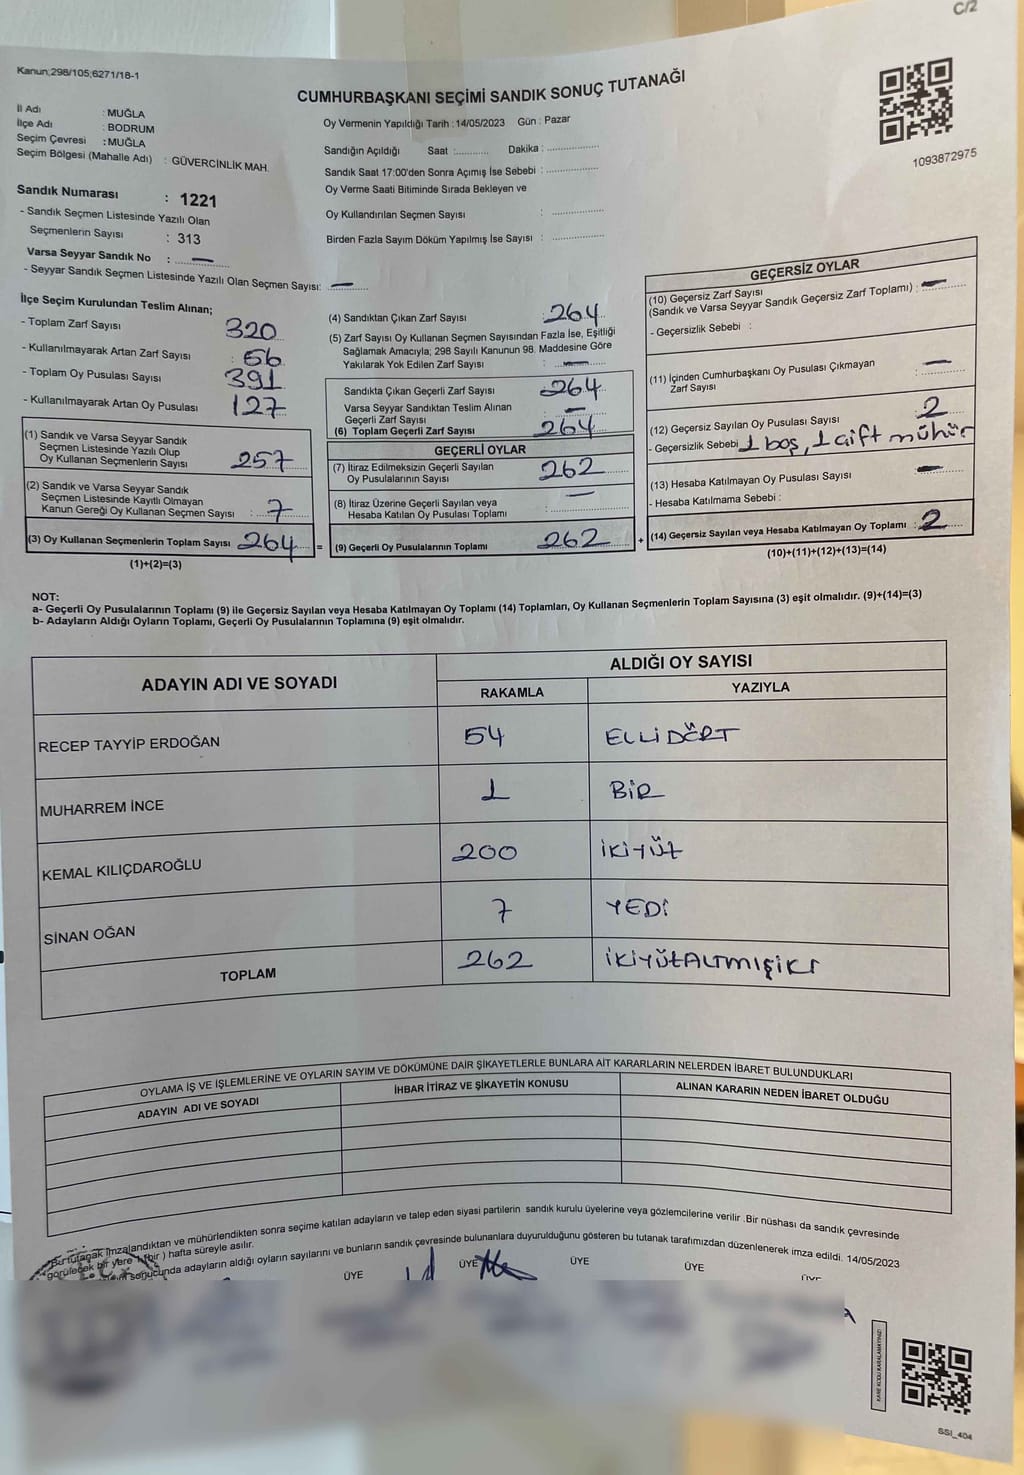 C/2
Kanun;298/105;6271/18-1
CUMHURBAŞKANI SEÇİMİ SANDIK SONUÇ TUTANAĞI
İl Adı : MUĞLA
İlçe Adı : BODRUM
Seçim Çevresi : MUĞLA
Seçim Bölgesi (Mahalle Adı) : GÜVERCİNLİK MAH.
Oy Vermenin Yapıldığı Tarih : 14/05/2023 Gün : Pazar
Sandığın Açıldığı Saat :........... Dakika :................
Sandık Saat 17:00'den Sonra Açımış İse Sebebi :................
Oy Verme Saati Bitiminde Sırada Bekleyen ve
Oy Kullandırılan Seçmen Sayısı : ................
Birden Fazla Sayım Döküm Yapılmış İse Sayısı : ................
1093872975
Sandık Numarası : 1221
- Sandık Seçmen Listesinde Yazılı Olan
Seçmenlerin Sayısı : 313
Varsa Seyyar Sandık No : —
- Seyyar Sandık Seçmen Listesinde Yazılı Olan Seçmen Sayısı: —
İlçe Seçim Kurulundan Teslim Alınan;
- Toplam Zarf Sayısı 320
- Kullanılmayarak Artan Zarf Sayısı : 56
- Toplam Oy Pusulası Sayısı 391
- Kullanılmayarak Artan Oy Pusulası 127
(1) Sandık ve Varsa Seyyar Sandık
Seçmen Listesinde Yazılı Olup
Oy Kullanan Seçmenlerin Sayısı 257
(2) Sandık ve Varsa Seyyar Sandık
Seçmen Listesinde Kayıtlı Olmayan
Kanun Gereği Oy Kullanan Seçmen Sayısı : 7
(3) Oy Kullanan Seçmenlerin Toplam Sayısı 264 =
(1)+(2)=(3)
(4) Sandıktan Çıkan Zarf Sayısı : 264
(5) Zarf Sayısı Oy Kullanan Seçmen Sayısından Fazla İse, Eşitliği
Sağlamak Amacıyla; 298 Sayılı Kanunun 98. Maddesine Göre
Yakılarak Yok Edilen Zarf Sayısı : —
Sandıkta Çıkan Geçerli Zarf Sayısı 264
Varsa Seyyar Sandıktan Teslim Alınan
Geçerli Zarf Sayısı : —
(6) Toplam Geçerli Zarf Sayısı 264
GEÇERLİ OYLAR
(7) İtiraz Edilmeksizin Geçerli Sayılan
Oy Pusulalarının Sayısı 262
(8) İtiraz Üzerine Geçerli Sayılan veya
Hesaba Katılan Oy Pusulası Toplamı : —
(9) Geçerli Oy Pusulalarının Toplamı 262 +
GEÇERSİZ OYLAR
(10) Geçersiz Zarf Sayısı
(Sandık ve Varsa Seyyar Sandık Geçersiz Zarf Toplamı) : —
- Geçersizlik Sebebi :
(11) İçinden Cumhurbaşkanı Oy Pusulası Çıkmayan
Zarf Sayısı : —
(12) Geçersiz Sayılan Oy Pusulası Sayısı 2
- Geçersizlik Sebebi 1 boş, 1 çift mühür
(13) Hesaba Katılmayan Oy Pusulası Sayısı —
- Hesaba Katılmama Sebebi :
(14) Geçersiz Sayılan veya Hesaba Katılmayan Oy Toplamı : 2
(10)+(11)+(12)+(13)=(14)
NOT:
a- Geçerli Oy Pusulalarının Toplamı (9) ile Geçersiz Sayılan veya Hesaba Katılmayan Oy Toplamı (14) Toplamları, Oy Kullanan Seçmenlerin Toplam Sayısına (3) eşit olmalıdır. (9)+(14)=(3)
b- Adayların Aldığı Oyların Toplamı, Geçerli Oy Pusulalarının Toplamına (9) eşit olmalıdır.
ADAYIN ADI VE SOYADI ALDIĞI OY SAYISI
RAKAMLA YAZIYLA
RECEP TAYYİP ERDOĞAN 54 ELLİDÖRT
MUHARREM İNCE 1 BİR
KEMAL KILIÇDAROĞLU 200 İKİYÜZ
SİNAN OĞAN 7 YEDİ
TOPLAM 262 İKİYÜZALTMIŞİKİ
OYLAMA İŞ VE İŞLEMLERİNE VE OYLARIN SAYIM VE DÖKÜMÜNE DAİR ŞİKAYETLERLE BUNLARA AİT KARARLARIN NELERDEN İBARET BULUNDUKLARI
ADAYIN ADI VE SOYADI İHBAR İTİRAZ VE ŞİKAYETİN KONUSU ALINAN KARARIN NEDEN İBARET OLDUĞU
Bu tutanak imzalandıktan ve mühürlendikten sonra seçime katılan adayların ve talep eden siyasi partilerin sandık kurulu üyelerine veya gözlemcilerine verilir .Bir nüshası da sandık çevresinde
görülecek bir yere 1(bir ) hafta süreyle asılır.
sonucunda adayların aldığı oyların sayılarını ve bunların sandık çevresinde bulunanlara duyurulduğunu gösteren bu tutanak tarafımızdan düzenlenerek imza edildi. 14/05/2023
ÜYE ÜYE ÜYE ÜYE ÜYE
KARE KODU KARALAMAYINIZ!
SSI_404